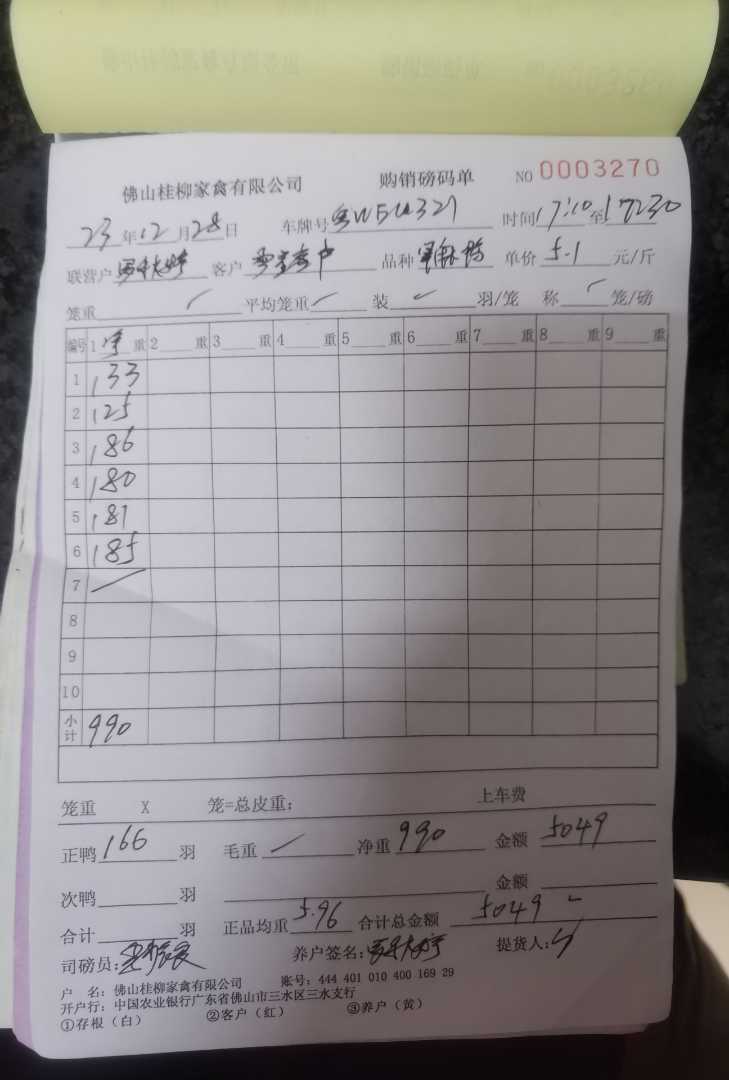 佛山桂柳家禽有限公司 购销磅码单 NO 0003270
23年12月28日 车牌号 时间17:10至17:30
联营户 客户 品种 单价 5.1 元/斤
笼重 ✓ 平均笼重 装 ✓ 羽/笼 称 笼/磅
编号 1 重 2 重 3 重 4 重 5 重 6 重 7 重 8 重 9 重
1 133
2 125
3 186
4 180
5 181
6 185
7
8
9
10
小计 990
笼重 X 笼=总皮重: 上车费
正鸭 166 羽 毛重 净重 990 金额 5049
次鸭 羽 金额
合计 羽 正品均重 5.96 合计总金额 5049
司磅员: 养户签名: 提货人:
户 名: 佛山桂柳家禽有限公司 账号: 444 401 010 400 169 29
开户行: 中国农业银行广东省佛山市三水区三水支行
①存根(白) ②客户(红) ③养户(黄)